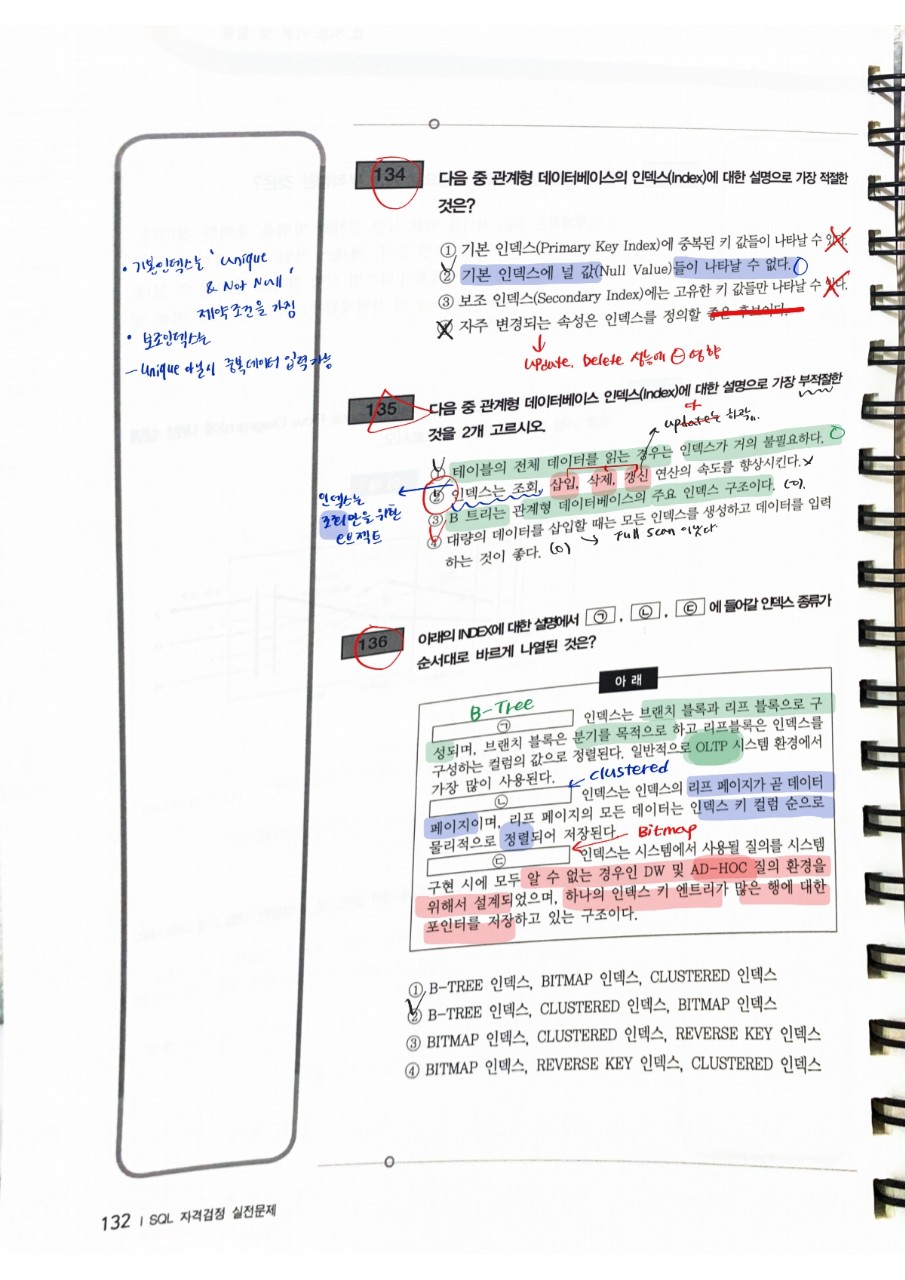 134 다음 중 관계형 데이터베이스의 인덱스(Index)에 대한 설명으로 가장 적절한
것은?
① 기본 인덱스(Primary Key Index)에 중복된 키 값들이 나타날 수 있다.
② 기본 인덱스에 널 값(Null Value)들이 나타날 수 없다.
③ 보조 인덱스(Secondary Index)에는 고유한 키 값들만 나타날 수 있다.
④ 자주 변경되는 속성은 인덱스를 정의할 좋은 후보이다.
update, Delete 성능에 ⊖ 영향
• 기본인덱스는 ' unique
& Not Null '
제약조건을 가짐
• 보조인덱스는
- unique 아닐시 중복데이터 입력가능
135 다음 중 관계형 데이터베이스 인덱스(Index)에 대한 설명으로 가장 부적절한
것을 2개 고르시오.
① 테이블의 전체 데이터를 읽는 경우는 인덱스가 거의 불필요하다.
② 인덱스는 조회, 삽입, 삭제, 갱신 연산의 속도를 향상시킨다.
③ B 트리는 관계형 데이터베이스의 주요 인덱스 구조이다. (o)
④ 대량의 데이터를 삽입할 때는 모든 인덱스를 생성하고 데이터를 입력
하는 것이 좋다. (o) Full scan
인덱스는
조회만을 위한
오브젝트
136 아래의 INDEX에 대한 설명에서 ㉠ , ㉡ , ㉢ 에 들어갈 인덱스 종류가
순서대로 바르게 나열된 것은?
아 래
B-Tree
㉠ 인덱스는 브랜치 블록과 리프 블록으로 구
성되며, 브랜치 블록은 분기를 목적으로 하고 리프블록은 인덱스를
구성하는 컬럼의 값으로 정렬된다. 일반적으로 OLTP 시스템 환경에서
가장 많이 사용된다.
clustered
㉡ 인덱스는 인덱스의 리프 페이지가 곧 데이터
페이지이며, 리프 페이지의 모든 데이터는 인덱스 키 컬럼 순으로
물리적으로 정렬되어 저장된다.
Bitmap
㉢ 인덱스는 시스템에서 사용될 질의를 시스템
구현 시에 모두 알 수 없는 경우인 DW 및 AD-HOC 질의 환경을
위해서 설계되었으며, 하나의 인덱스 키 엔트리가 많은 행에 대한
포인터를 저장하고 있는 구조이다.
① B-TREE 인덱스, BITMAP 인덱스, CLUSTERED 인덱스
② B-TREE 인덱스, CLUSTERED 인덱스, BITMAP 인덱스
③ BITMAP 인덱스, CLUSTERED 인덱스, REVERSE KEY 인덱스
④ BITMAP 인덱스, REVERSE KEY 인덱스, CLUSTERED 인덱스
132 | SQL 자격검정 실전문제